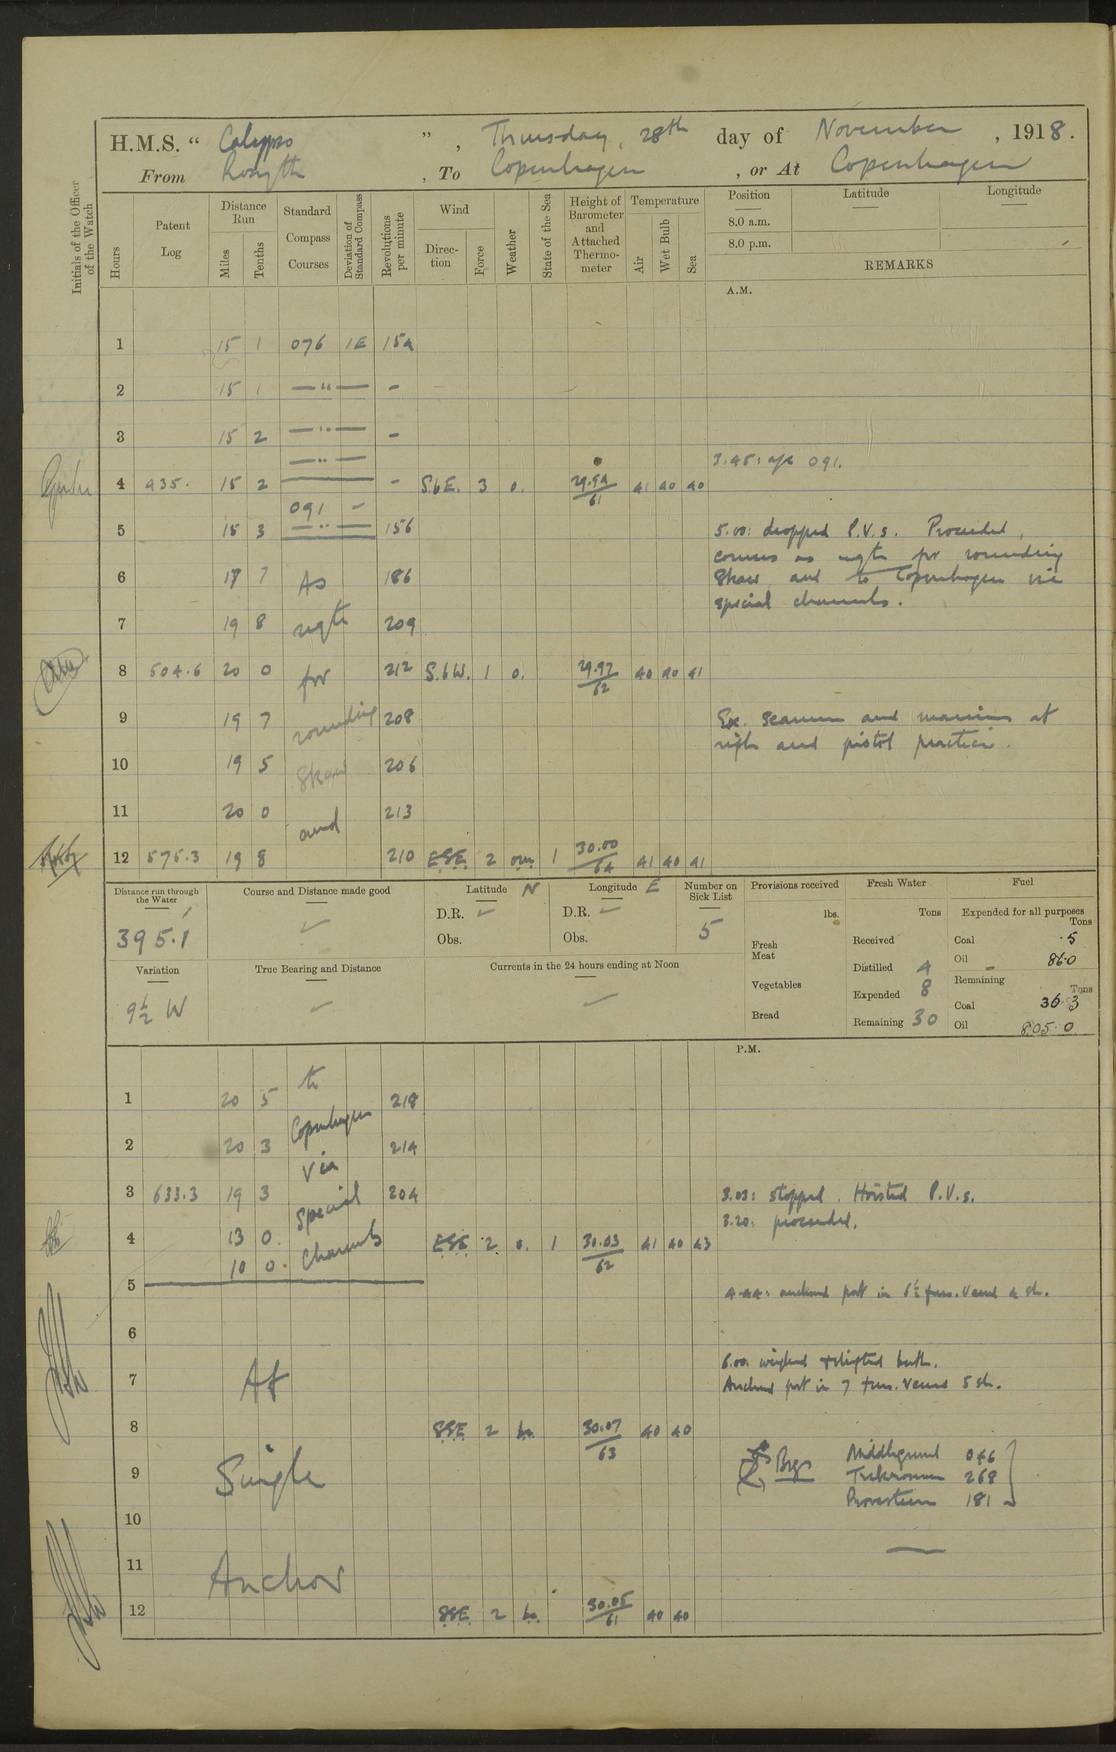 H.M.S. " Calypso ", Thursday, 28th day of November, 1918.
From Rosyth, To Copenhagen, or At Copenhagen
Initials of the Officer of the Watch
Hours
Patent Log
Distance Run
Miles
Tenths
Standard Compass Courses
Deviation of Standard Compass
Revolutions per minute
Wind
Direction
Force
Weather
State of the Sea
Height of Barometer and Attached Thermometer
Temperature
Air
Wet Bulb
Sea
Position Latitude Longitude
8.0 a.m.
8.0 p.m.
REMARKS
A.M.
1 15 1 076 1E 154
2 15 1 — " — -
3 15 2 — " — -
— " —
3.45: a/c 091.
4 435. 15 2 - S.b.E. 3 o. 29.94 61 41 40 40
091 -
5 15 3 — " — 156 5.00: dropped P.V.s. Proceeded,
courses as reqte for rounding
6 17 7 As 186 Skaw, and to Copenhagen via
special channels.
7 19 8 reqte 209
8 504.6 20 0 for 212 S.b.W. 1 o. 29.97 62 40 40 41
9 19 7 rounding 208 Ex. seamen and marines at
rifle and pistol practice.
10 19 5 Skaw 206
11 20 0 and 213
12 575.3 19 8 210 ESE 2 om 1 30.00 64 41 40 41
Distance run through the Water
395.1
Course and Distance made good
Latitude N
D.R.
Obs.
Longitude E
D.R.
Obs.
Number on Sick List
5
Provisions received
lbs.
Fresh Meat
Vegetables
Bread
Fresh Water
Tons
Received
Distilled 4
Expended 8
Remaining 30
Fuel
Expended for all purposes
Tons
Coal .5
Oil 86.0
Remaining
Tons
Coal 36.3
Oil 805.0
Variation
9½ W
True Bearing and Distance
Currents in the 24 hours ending at Noon
P.M.
to
1 20 5 218
Copenhagen
2 20 3 214
via
3 633.3 19 3 204 3.03: stopped. Hoisted P.V.s.
special
3.20: proceeded.
4 13 0. channels ESE 2 o. 1 30.03 62 41 40 43
10 0.
5 4.44: anchored port in 6½ fms. Veered 4 sh.
6
6.00: weighed & shifted berth.
7 At Anchored port in 7 fms. Veered 5 sh.
8 SSE 2 bc. 30.07 63 40 40
Brgs Middlegrund 046
9 Single Trekroner 268
Provesteen 181
10
11 Anchor
12 SSE 2 bc. 30.05 61 40 40